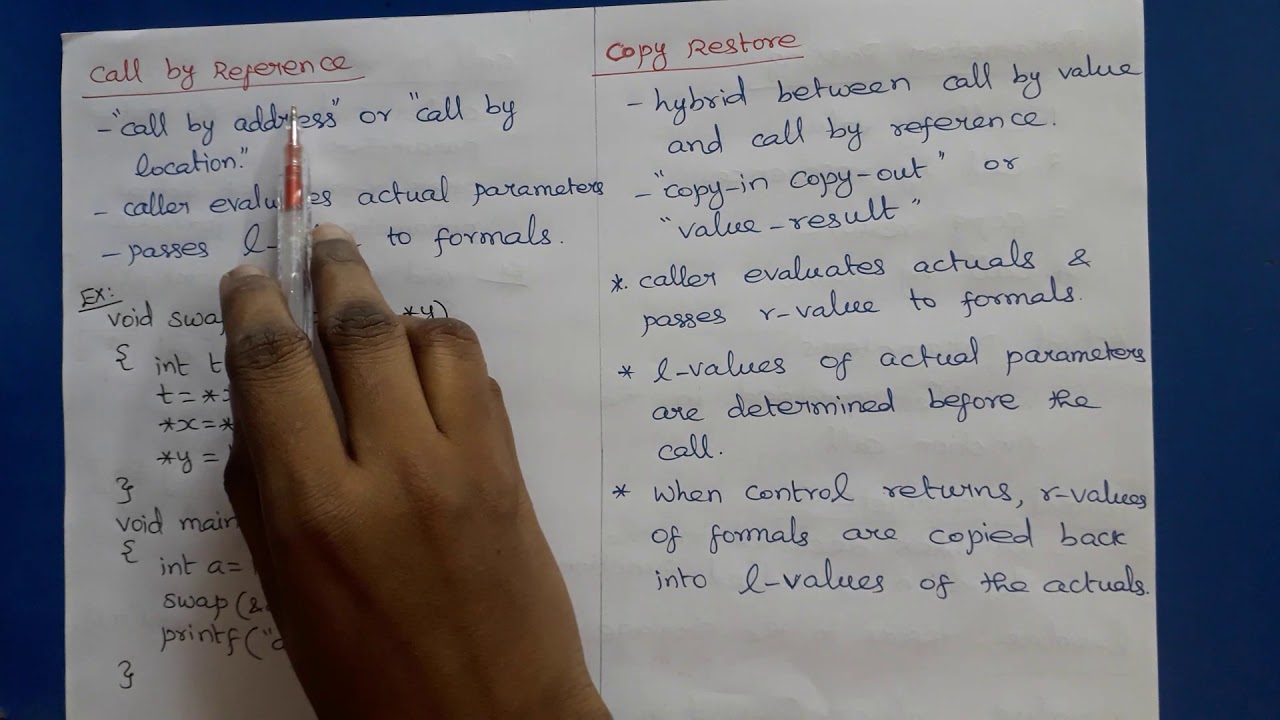 Call by Reference
- "call by address" or "call by
location."
- caller evaluates actual parameters
- passes l- to formals.
Ex:
void swap *y)
{ int t
t = *x
*x = *
*y =
}
void main
{
int a =
swap (&
printf ("a
}
Copy Restore
- hybrid between call by value
and call by reference.
- "copy-in copy-out" or
"value-result"
*. caller evaluates actuals &
passes r-value to formals.
* l-values of actual parameters
are determined before the
call.
* When control returns, r-values
of formals are copied back
into l-values of the actuals.